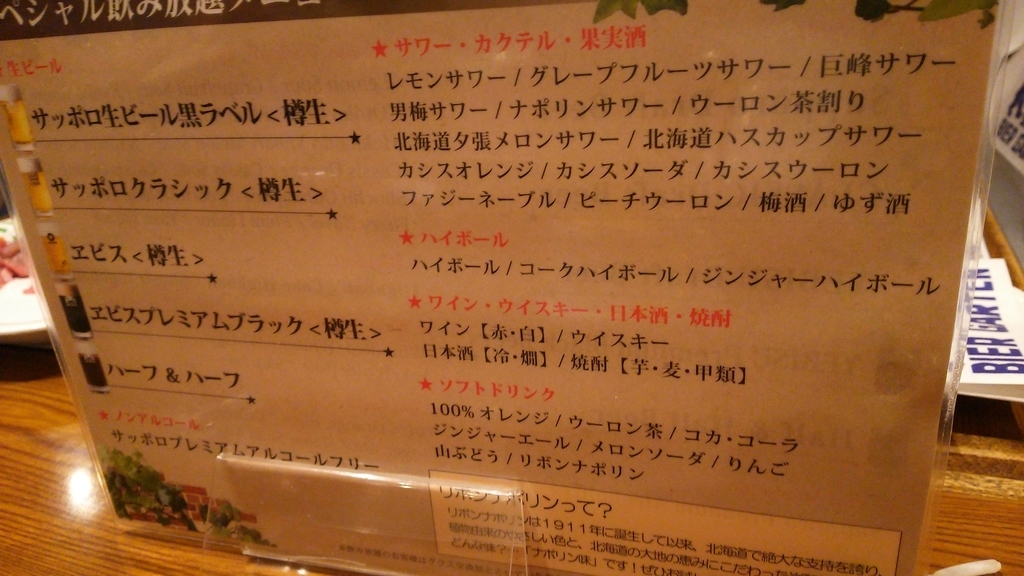 ペシャル飲み放題メニュー
生ビール
サッポロ生ビール黒ラベル<樽生>
サッポロクラシック<樽生>
ヱビス<樽生>
ヱビスプレミアムブラック<樽生>
ハーフ & ハーフ
★ノンアルコール
サッポロプレミアムアルコールフリー
★サワー・カクテル・果実酒
レモンサワー / グレープフルーツサワー / 巨峰サワー
男梅サワー / ナポリンサワー / ウーロン茶割り
北海道夕張メロンサワー / 北海道ハスカップサワー
カシスオレンジ / カシスソーダ / カシスウーロン
ファジーネーブル / ピーチウーロン / 梅酒 / ゆず酒
★ハイボール
ハイボール / コークハイボール / ジンジャーハイボール
★ワイン・ウイスキー・日本酒・焼酎
ワイン【赤・白】/ ウイスキー
日本酒【冷・燗】/ 焼酎【芋・麦・甲類】
★ソフトドリンク
100% オレンジ / ウーロン茶 / コカ・コーラ
ジンジャーエール / メロンソーダ / りんご
山ぶどう / リボンナポリン
リボンナポリンって?
リボンナポリンは1911年に誕生して以来、北海道で絶大な支持を誇り、
植物由来のやさしい色と、北海道の大地の恵みにこだわった
どんな味?「ナポリン味」です!ぜひ
BIER GARTEN